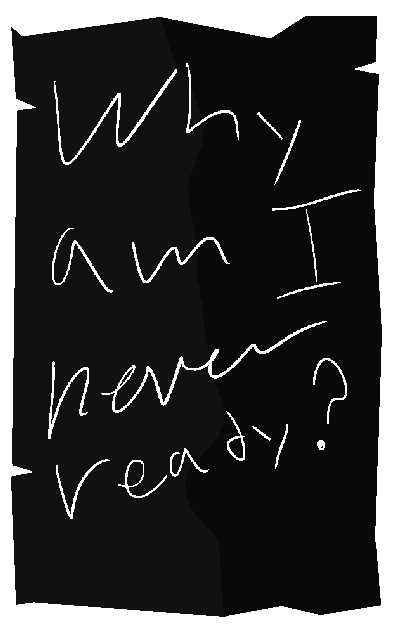 Why
am I
never
ready?